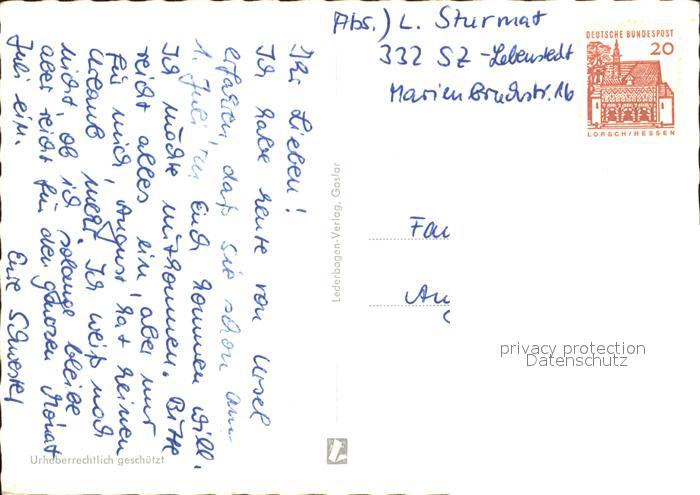 Abs.) L. Sturmat
332 SZ-Lebenstedt
Marienbruchstr. 16
DEUTSCHE BUNDESPOST
20
LORSCH/HESSEN
Ihr Lieben!
Ich habe heute von Ursel
erfahren, daß sie schon am
1. Juli zu Euch kommen will.
Ich möchte mitkommen. Bitte
reicht alles ein, aber nur
für mich, August hat keinen
Urlaub mehr. Ich weiß noch
nicht, ob ich solange bleibe
aber reicht für den ganzen Monat
Juli ein.
Eure Schwester
Lederbogen-Verlag, Goslar
Fam
privacy protection
Datenschutz
Urheberrechtlich geschützt